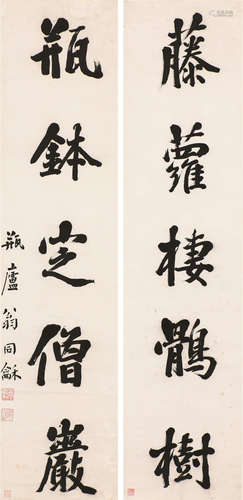 藤蘿棲鶻樹
瓶鉢定僧巖
瓶廬翁同龢